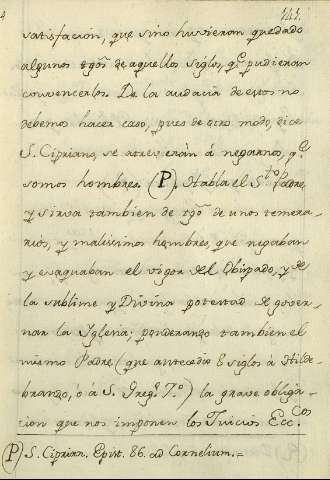 141.
satisfacion, que sino huvieran quedado
algunos tgõs de aquellos siglos, q.e pudieran
convencerlos. De la audacia de estos no
debemos hacer caso, pues de otro modo, dice
S. Cipriano, se atreverán á negarnos, q.e
somos hombres. (P). Habla el S.to Padre,
y sirva tambien de tgõ de unos temera-
rios, y malissimos hombres, que negaban
y evaquaban el vigor del Obispado, y de
la sublime y Divina potestad de gover-
nar la Iglesia; ponderando tambien el
mismo Padre (que antecedió 8 siglos á Hilde-
brando, ó á S. Greg.o 7.o) la grave obliga-
cion que nos imponen los Juicios Ecc.cos
(P) S. Ciprian. Epist. 86. ad Cornelium.=